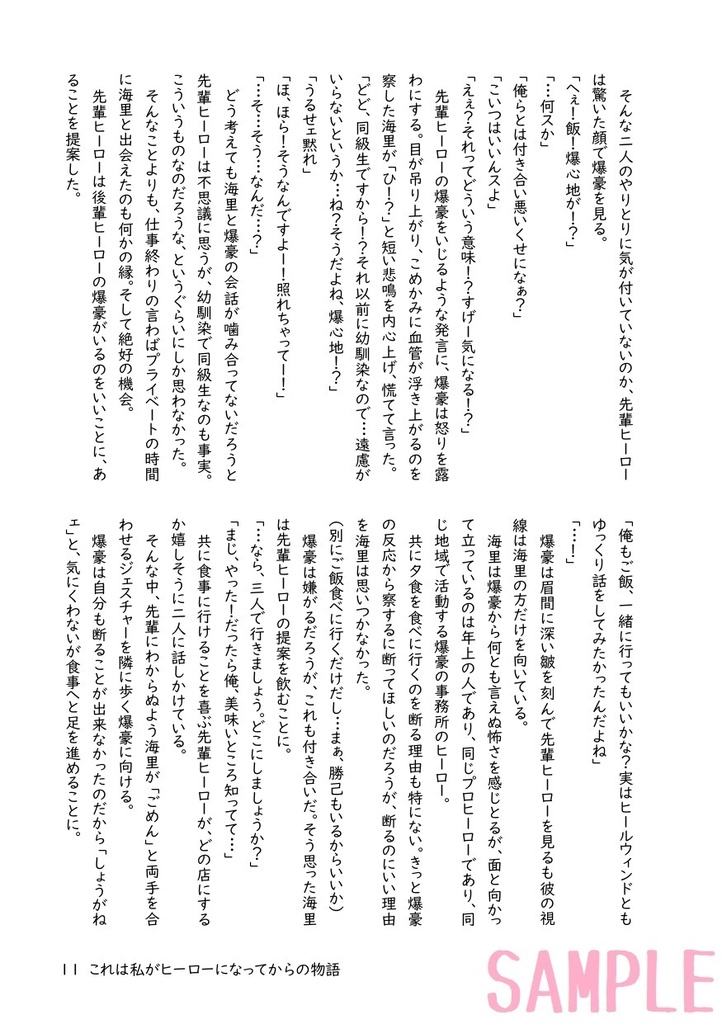 そんな二人のやりとりに気が付いていないのか、先輩ヒーロー
は驚いた顔で爆豪を見る。
「へぇ！飯！爆心地が！？」
「…何スか」
「俺らとは付き合い悪いくせになぁ？」
「こいつはいいんスよ」
「えぇ？それってどういう意味！？すげー気になる！？」
先輩ヒーローの爆豪をいじるような発言に、爆豪は怒りを露
わにする。目が吊り上がり、こめかみに血管が浮き上がるのを
察した海里が「ひ！？」と短い悲鳴を内心上げ、慌てて言った。
「どど、同級生ですから！？それ以前に幼馴染なので…遠慮が
いらないというか…ね？そうだよね、爆心地ー！？」
「うるせェ黙れ」
「ほ、ほら！そうなんですよー！照れちゃってー！」
「…そ…そう…なんだ…？」
どう考えても海里と爆豪の会話が噛み合ってないだろうと
先輩ヒーローは不思議に思うが、幼馴染で同級生なのも事実。
こういうものなのだろうな、というぐらいにしか思わなかった。
そんなことよりも、仕事終わりの言わばプライベートの時間
に海里と出会えたのも何かの縁。そして絶好の機会。
先輩ヒーローは後輩ヒーローの爆豪がいるのをいいことに、あ
ることを提案した。
「俺もご飯、一緒に行ってもいいかな？実はヒールウィンドとも
ゆっくり話をしてみたかったんだよね」
「…！」
爆豪は眉間に深い皺を刻んで先輩ヒーローを見るも彼の視
線は海里の方だけを向いている。
海里は爆豪から何とも言えぬ怖さを感じとるが、面と向かっ
て立っているのは年上の人であり、同じプロヒーローであり、同
じ地域で活動する爆豪の事務所のヒーロー。
共に夕食を食べに行くのを断る理由も特にない。きっと爆豪
の反応から察するに断ってほしいのだろうが、断るのにいい理由
を海里は思いつかなかった。
（別にご飯食べに行くだけだし…まぁ、勝己もいるからいいか）
爆豪は嫌がるだろうが、これも付き合いだ。そう思った海里
は先輩ヒーローの提案を飲むことに。
「…なら、三人で行きましょう。どこにしましょうか？」
「まじ、やった！だったら俺、美味いところ知ってて…」
共に食事に行けることを喜ぶ先輩ヒーローが、どの店にする
か嬉しそうに二人に話しかけている。
そんな中、先輩にわからぬよう海里が「ごめん」と両手を合
わせるジェスチャーを隣に歩く爆豪に向ける。
爆豪は自分も断ることが出来なかったのだから「しょうがね
ェ」と、気にくわないが食事へと足を進めることに。
11 これは私がヒーローになってからの物語
SAMPLE